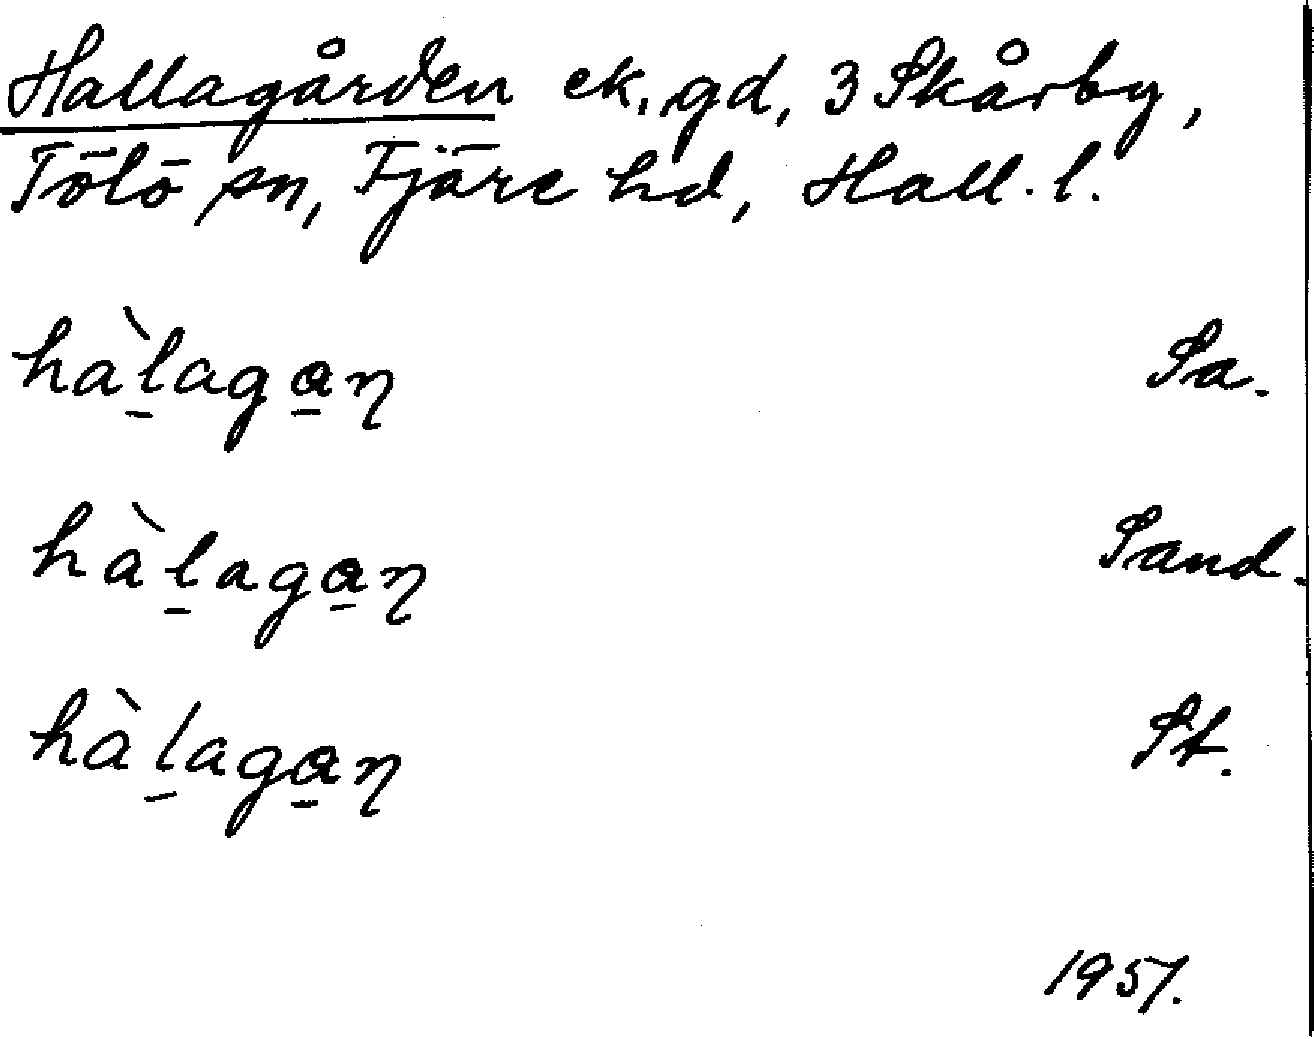 Hallagården ek. gd, 3 Skårby,
Tölö sn, Fjäre hd, Hall. l.
hàl̠aga̠ɳ Sa.
hàl̠aga̠ɳ Sand.
hàl̠aga̠ɳ St.
1951.